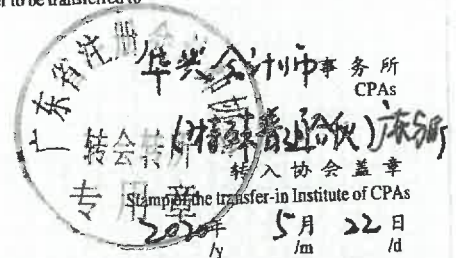 er to be transferred to
华兴会计师事务所
CPAs
(特殊普通合伙)广东分所
转入协会盖章
Stamp of the transfer-in Institute of CPAs
2020年 5月 22日
/y /m /d
广东省注册会计师协会
转会转所
专用章